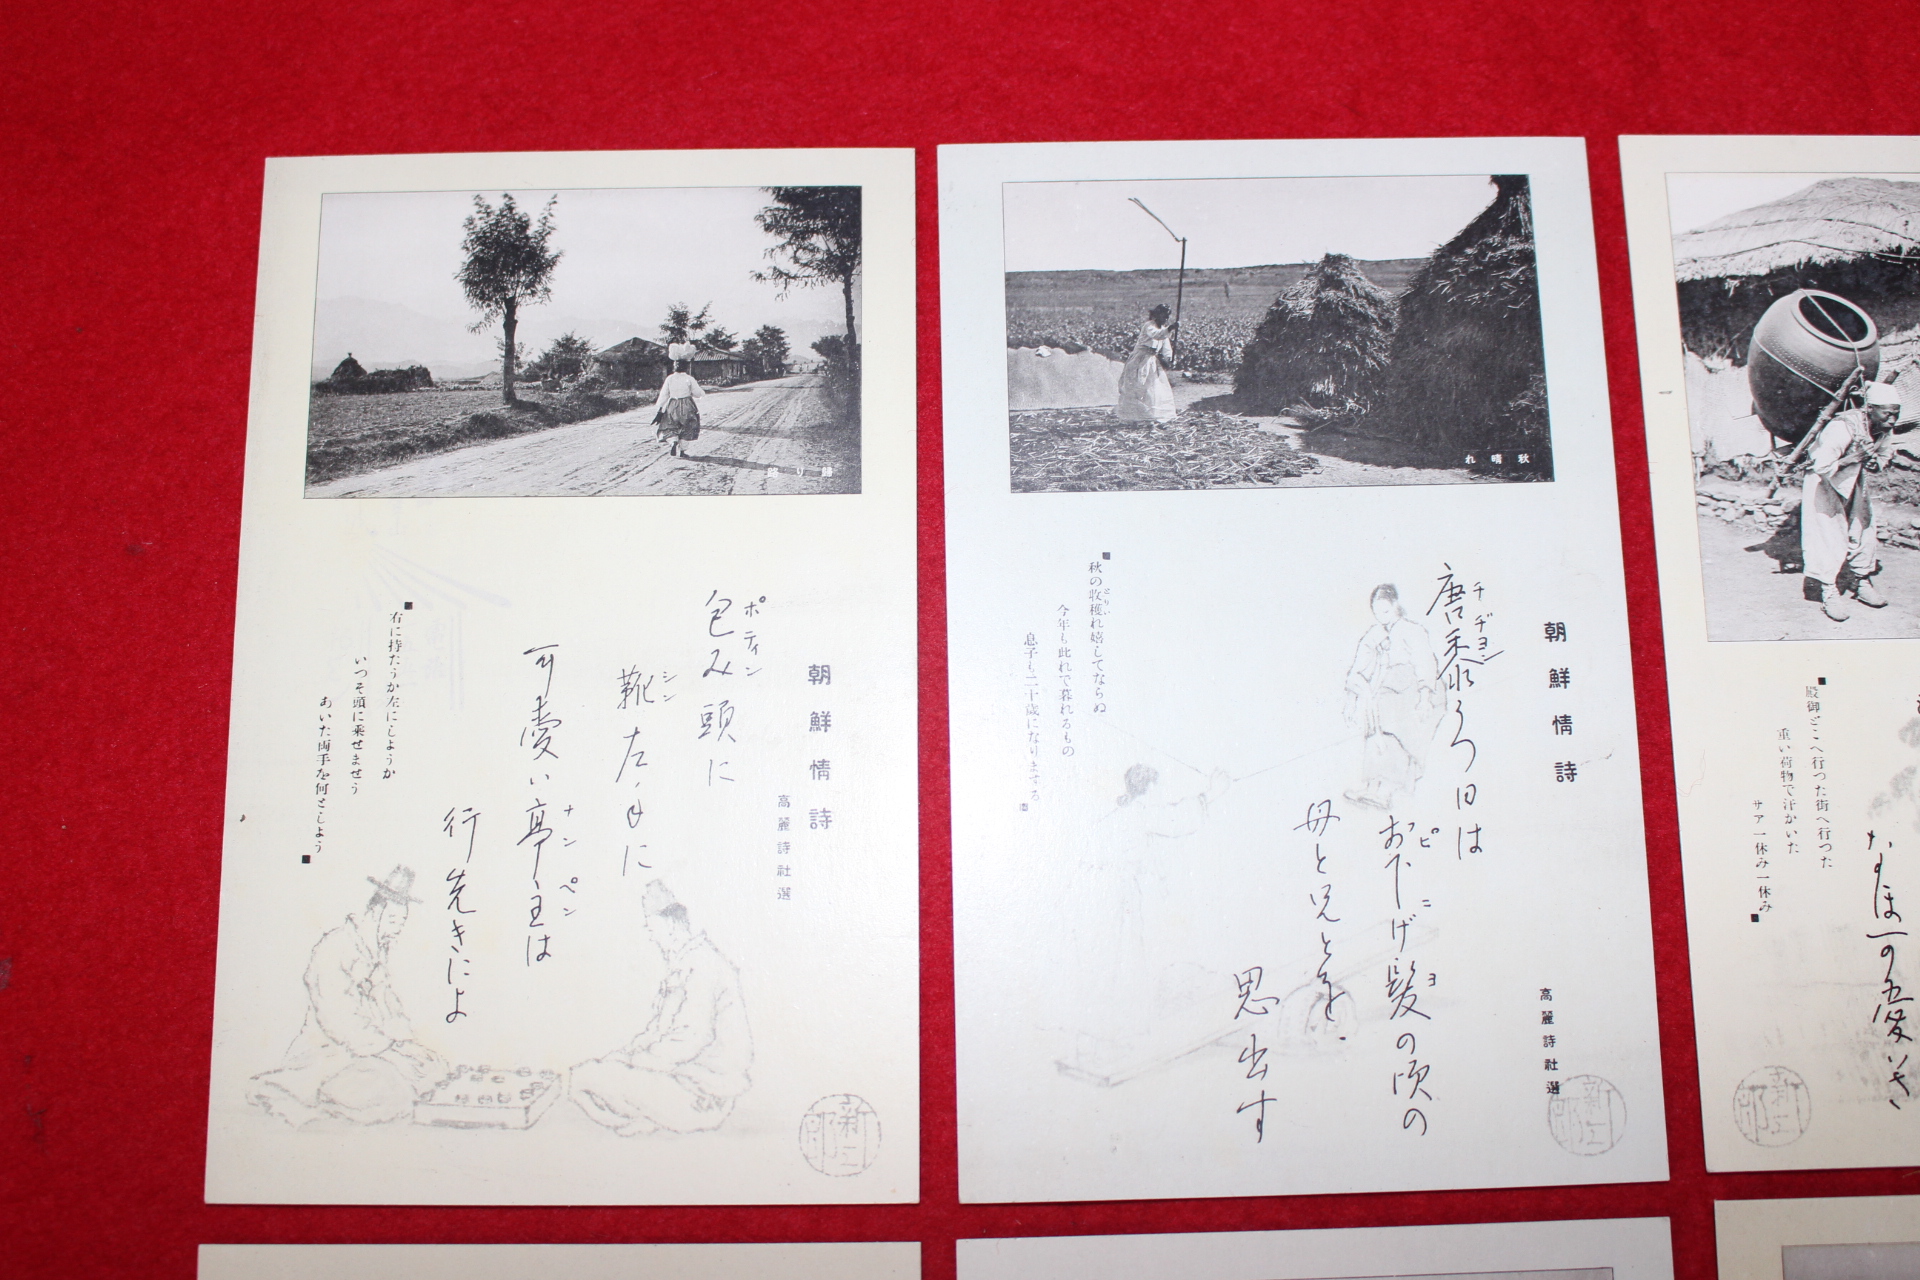 歸り路
朝鮮情詩
高麗詩社選
包み頭に
ポティン
靴左手に
シン
可愛い亭主は
ナンペン
行先きによ
■右に持たうか左にしようか
いつそ頭に乗せませう
あいた両手を何としよう■
秋晴れ
朝鮮情詩
高麗詩社選
唐黍うつ日は
チヂョン
お下げ髪の頃の
母と兄とを
思出す
■秋の収穫れ嬉してならぬ
とりい
今年も此れで暮れるもの
息子も二十歳になりまする■
■殿御どこへ行つた街へ行つた
重い荷物で汗かいた
サア一休み一休み■